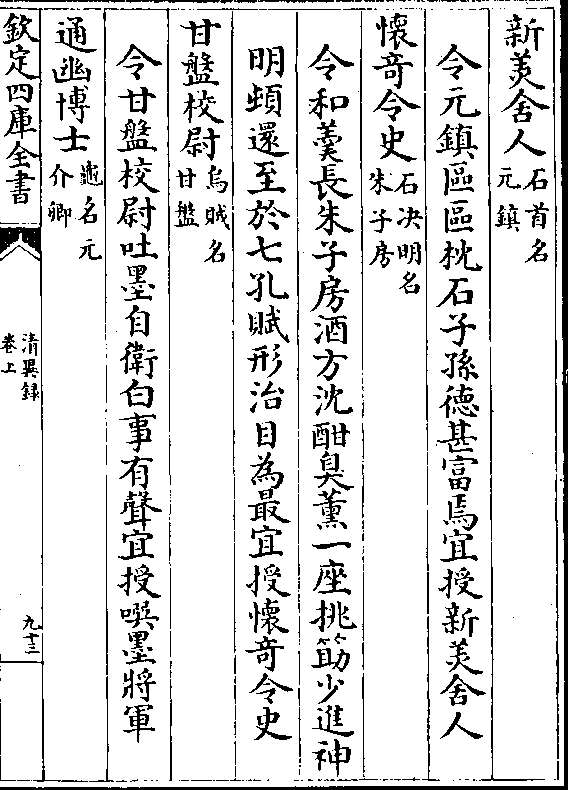 新美舍人石首名元鎮
令元鎮區區枕石子孫德甚富焉宜授新美舍人
懷竒令史石决明名朱子房
令和羮長朱子房酒方沈酣臭薰一座挑筯少進神
明頓還至於七孔賦形治目為最宜授懷竒令史
甘盤校尉烏賊名甘盤
令甘盤校尉吐墨自衛白事有聲宜授噀墨將軍
通幽博士龜名元介卿
欽定四庫全書
清異録
卷上
九十三